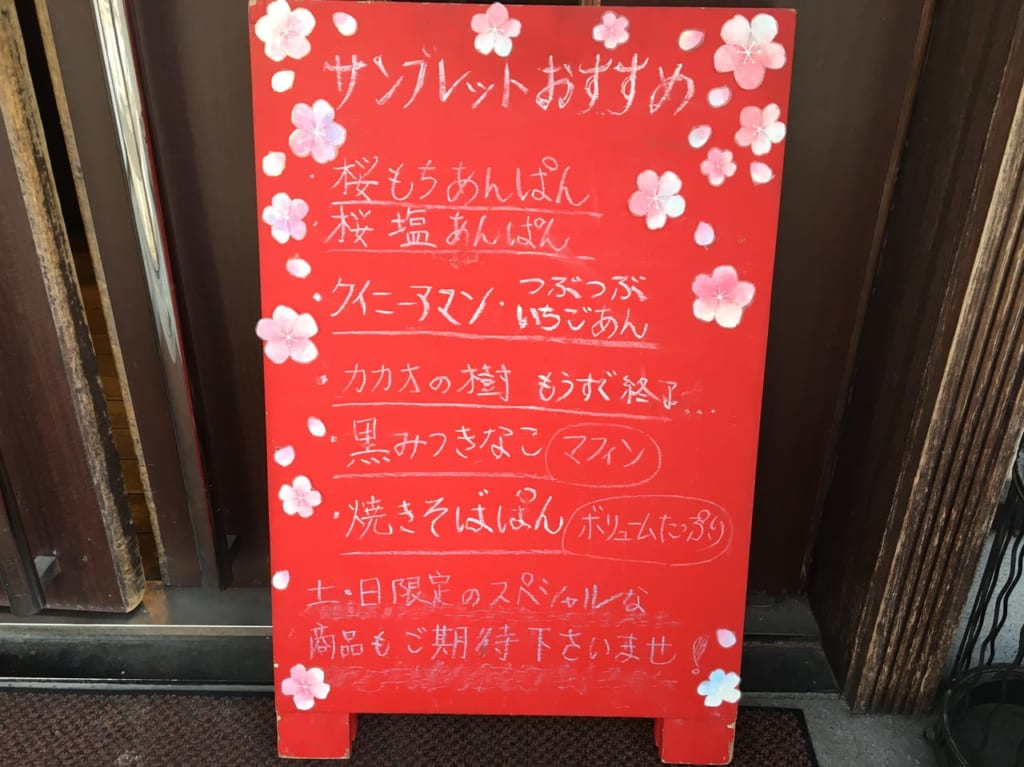 サンブレットおすすめ
・桜もちあんぱん
・桜塩あんぱん
クイニーアマン・つぶつぶ
いちごあん
カカオの樹 もうすぐ終了...
・黒みつきなこ マフィン
・焼きそばぱん ボリュームたっぷり
土・日限定のスペシャルな
商品もご期待下さいませ!